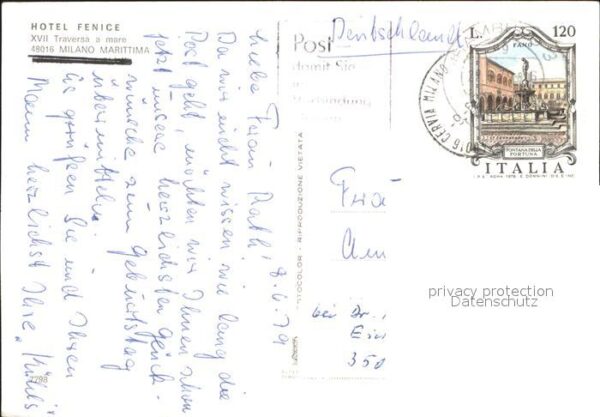 HOTEL FENICE
XVII Traversa a mare
48016 MILANO MARITTIMA
8.6.79
Liebe Frau Roth!
Da wir nicht wissen wie lang die
Post geht, möchten wir Ihnen schon
jetzt unsere herzlichsten Glück-
wünsche zum Geburtstag
übermitteln.
Es grüßen Sie und Ihren
Mann herzlichst Ihre
Deutschland
Post
damit Sie
RIPRODUZIONE VIETATA
L. 120
FANO
FONTANA DELLA
FORTUNA
ITALIA
CERVIA MILANO
bei Br.,
350
privacy protection
Datenschutz